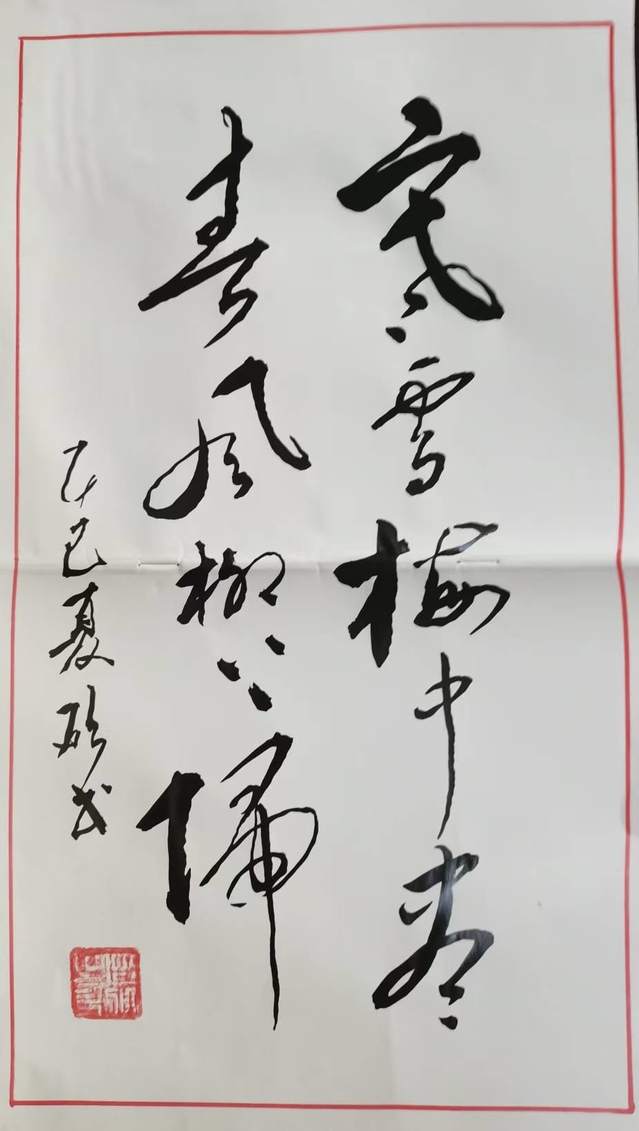 寒雪梅中尽
春风柳上归
巳夏